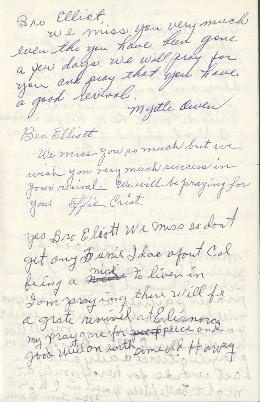 Bro Elliot,
we miss you very much
even tho you have been gone
a few days. we will pray for
you and pray that you have
a good revival.
Myrtle Owen
Bro Elliott
We miss you so much but we
wish you very much success in
your revival. We will be praying for
you Effie Crist.
yes Bro Eliott We miss so dont
get any funie Idae afout Col
being a much to live in
I am praying there will be
a grate revival at
my pray me for peece and
good will on earth